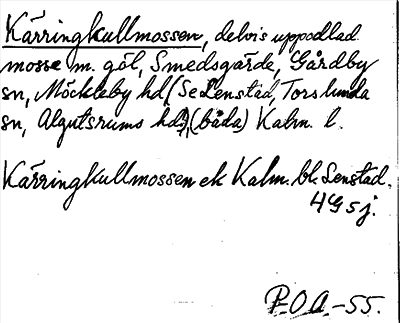 Kärringkullmossen, delvis uppodlad
mosse m. göl, Smedsgärde, Gårdby
sn, Möckleby hd, (Se Lenstad, Torslunda
sn, Algutsrums hd), (båda) Kalm. l.
Kärringkullmossen ek Kalm. bl. Lenstad.
4G5j.
P.O.A.-55.